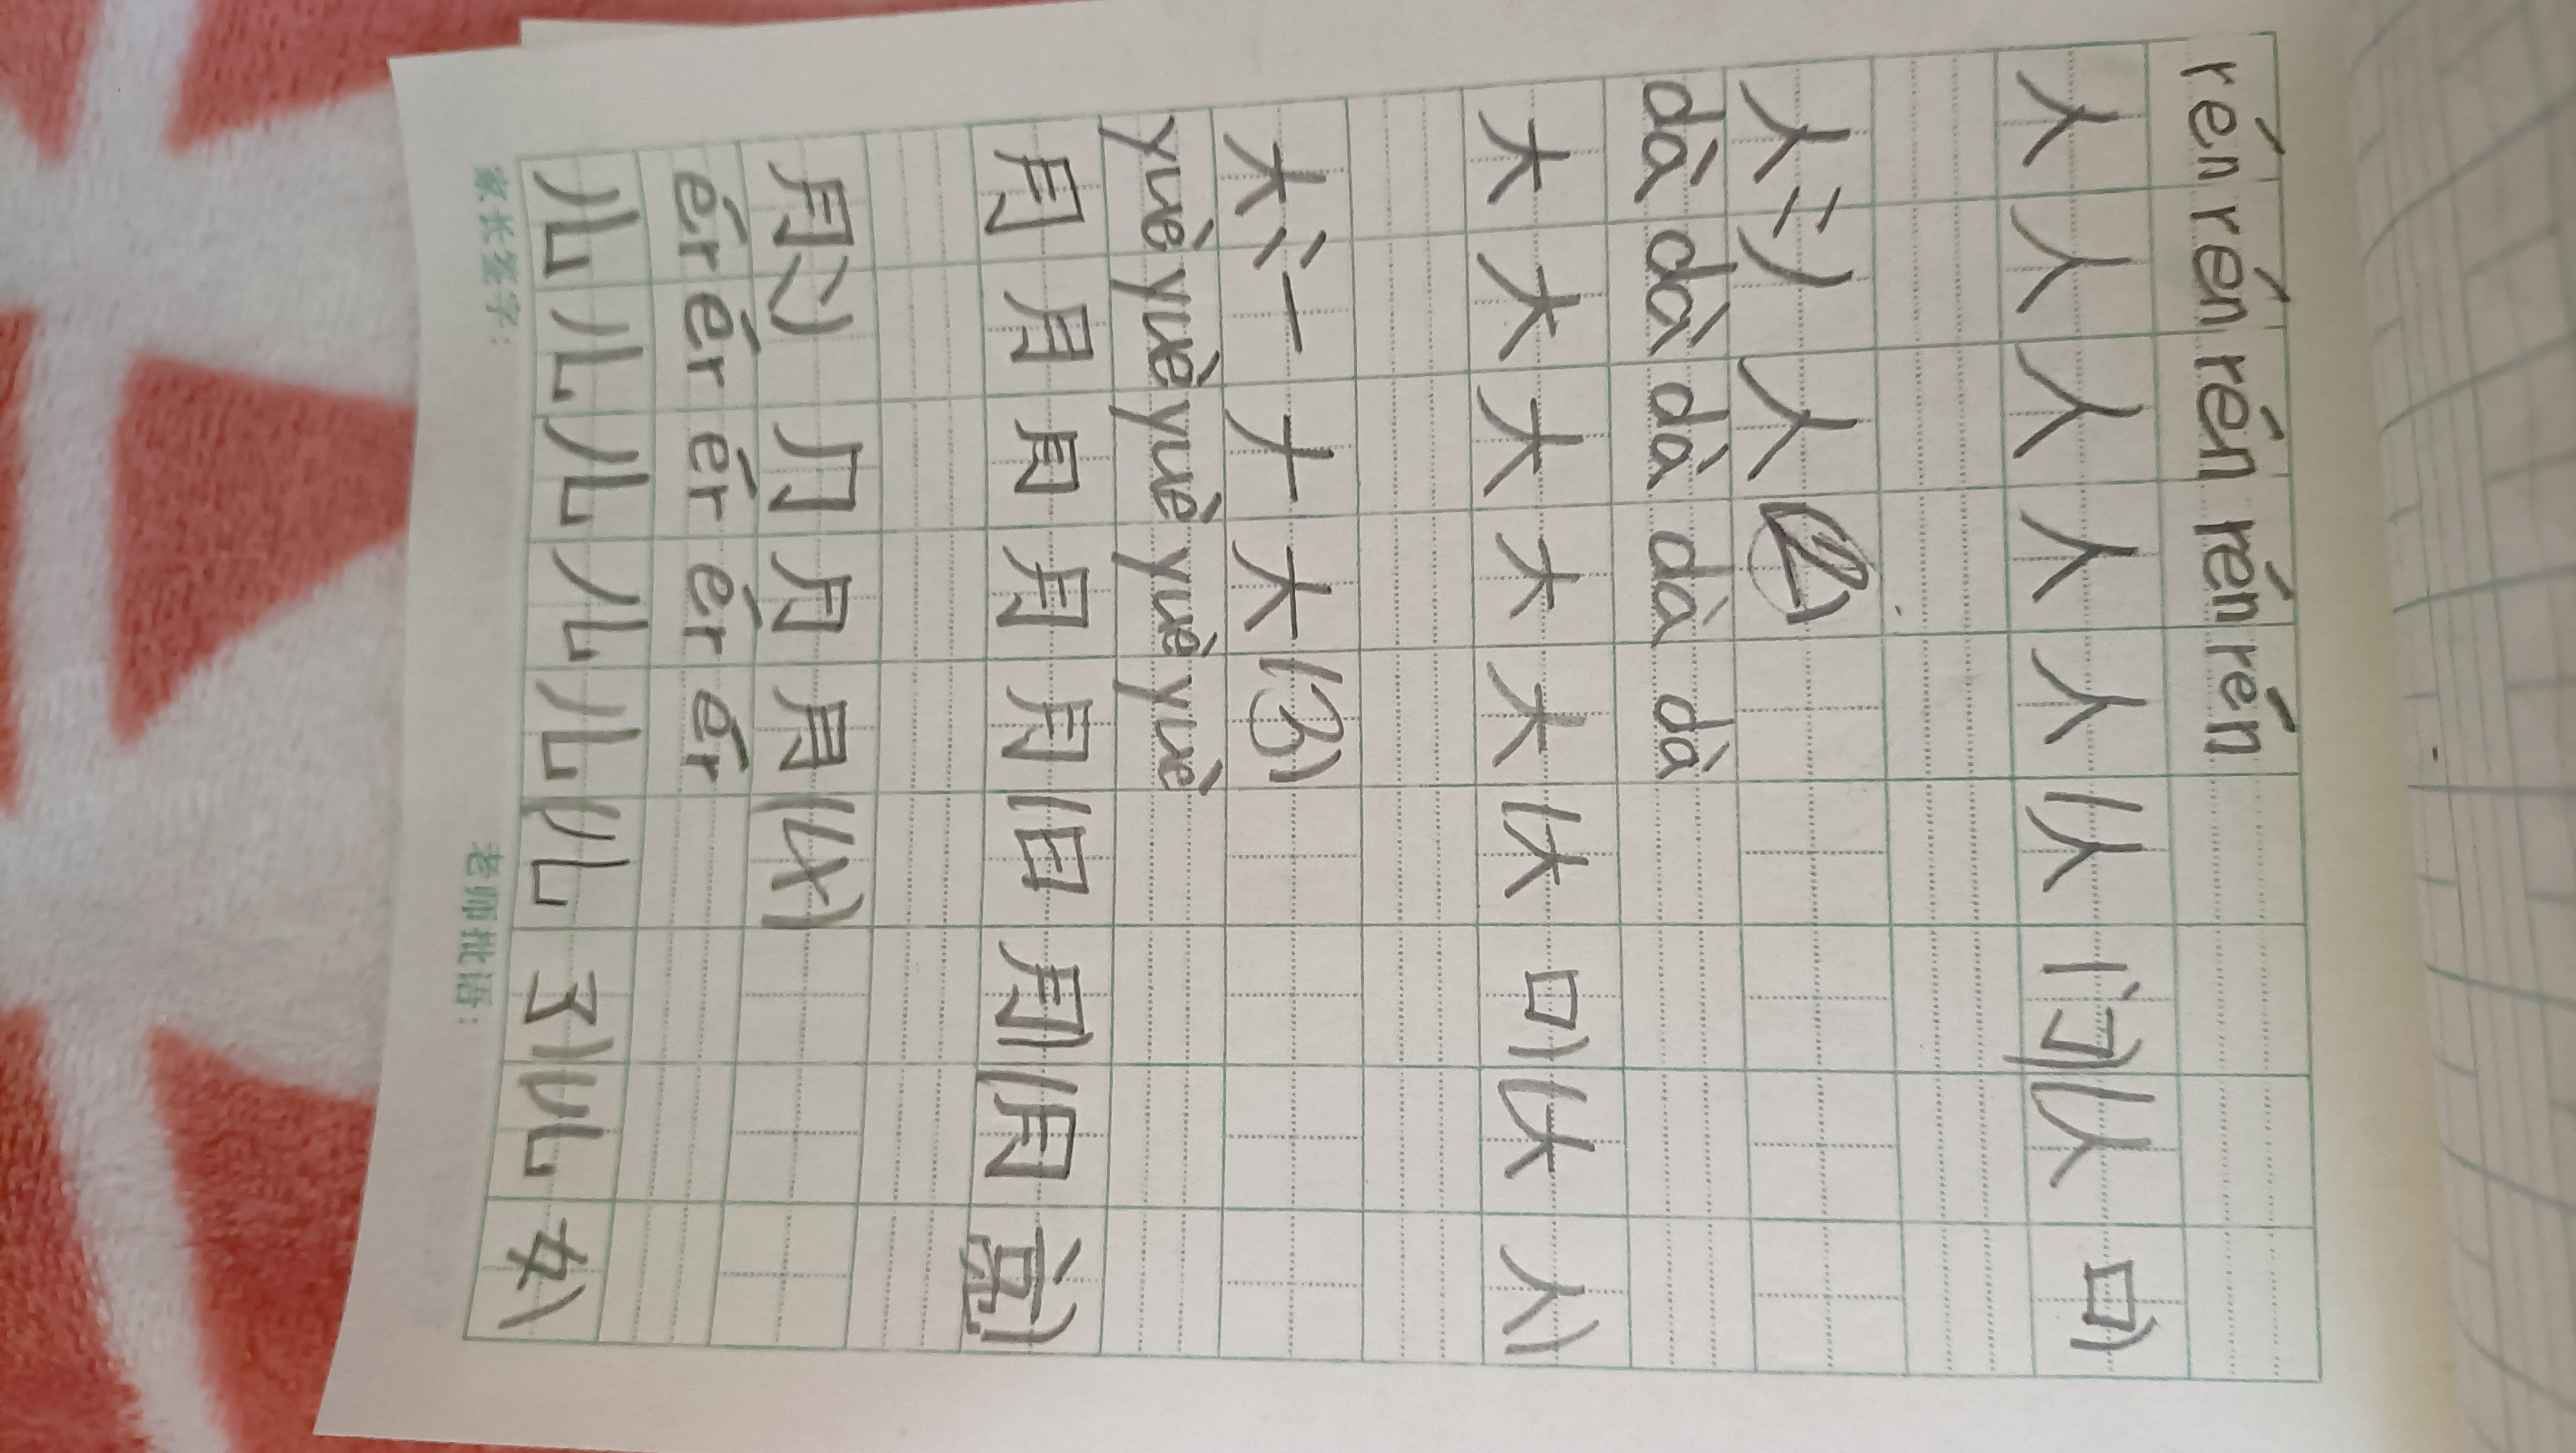 rén rén rén rén rén
人 人 人 人 人 (人门) (人口)
人: 丿 人 (2)
dà dà dà dà dà
大 大 大 大 大 (大口) (大人)
大: 一 ナ 大 (3)
yuè yuè yuè yuè yuè
月 月 月 月 月 (日月) (月亮)
月: 丿 ⺆ 月 月 (4)
ér ér ér ér ér
儿 儿 儿 儿 儿 (儿子) (儿女)
家长签字： 老师批语：